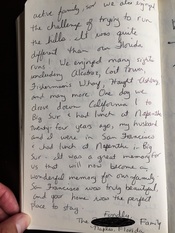 active family, so we also enjoyed
the challenge of trying to run
the hills. It was quite
different than our Florida
runs! We enjoyed many sights
including Alcatraz, Coit Tower,
Fisherman's Wharf, Haight Ashbury,
and many more. One day we
drove down California 1 to
Big Sur & had lunch at Nepenthe.
Twenty-four years ago, my husband
and I were in San Francisco
& had lunch at Nepenthe in Big
Sur. It was a great memory for
us that will now become a
wonderful memory for our family.
San Francisco was truly beautiful,
and your home was the perfect
place to stay.
Fondly,
The Family
Florida